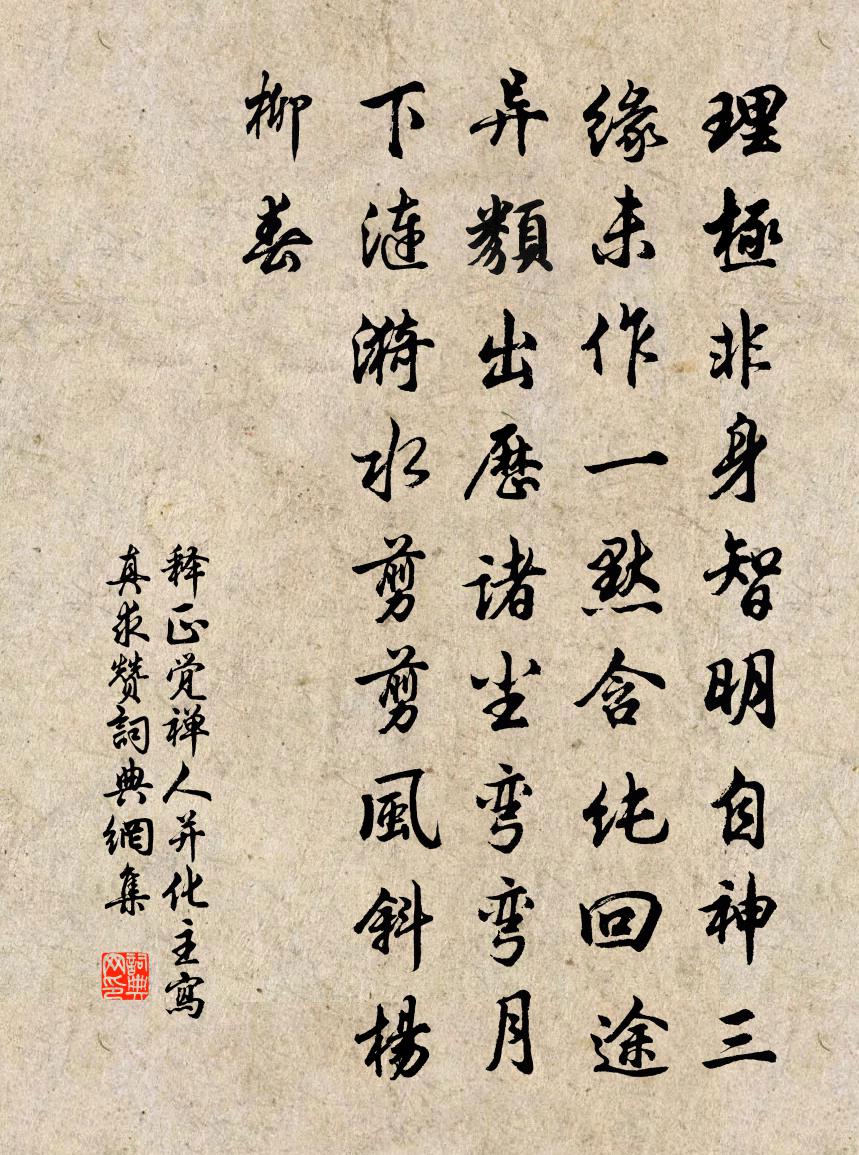 理極非身智明自神三
緣未作一默含純回途
异類出歷諸尘彎彎月
下漣漪水剪剪風斜楊
柳春
释正觉禅人并化主寫
真求赞詞典網集
詞典
网印